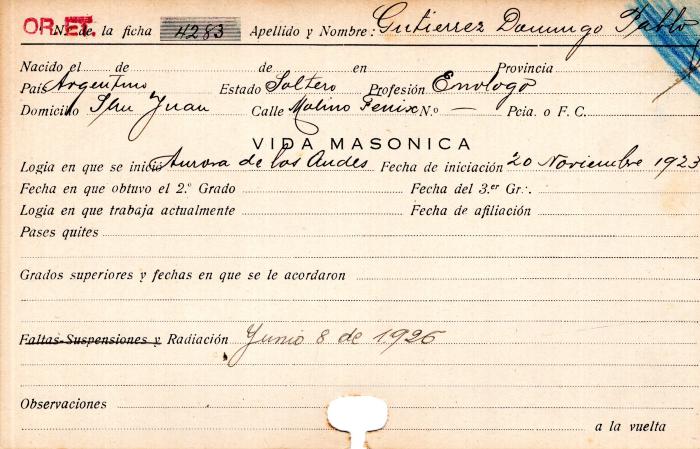 OR.ET. N.º de la ficha 4283 Apellido y Nombre: Gutierrez Domingo Pablo
Nacido el de de en Provincia
País Argentino Estado Soltero Profesión Enologo
Domicilio San Juan Calle Molino Fenix N.o — Pcia. o F. C.
VIDA MASONICA
Logia en que se inició Aurora de los Andes Fecha de iniciación 20 Noviembre 1923
Fecha en que obtuvo el 2.º Grado Fecha del 3.er Gr.·.
Logia en que trabaja actualmente Fecha de afiliación
Pases quites
Grados superiores y fechas en que se le acordaron
Faltas-Suspensiones y Radiación Junio 8 de 1926
Observaciones
a la vuelta